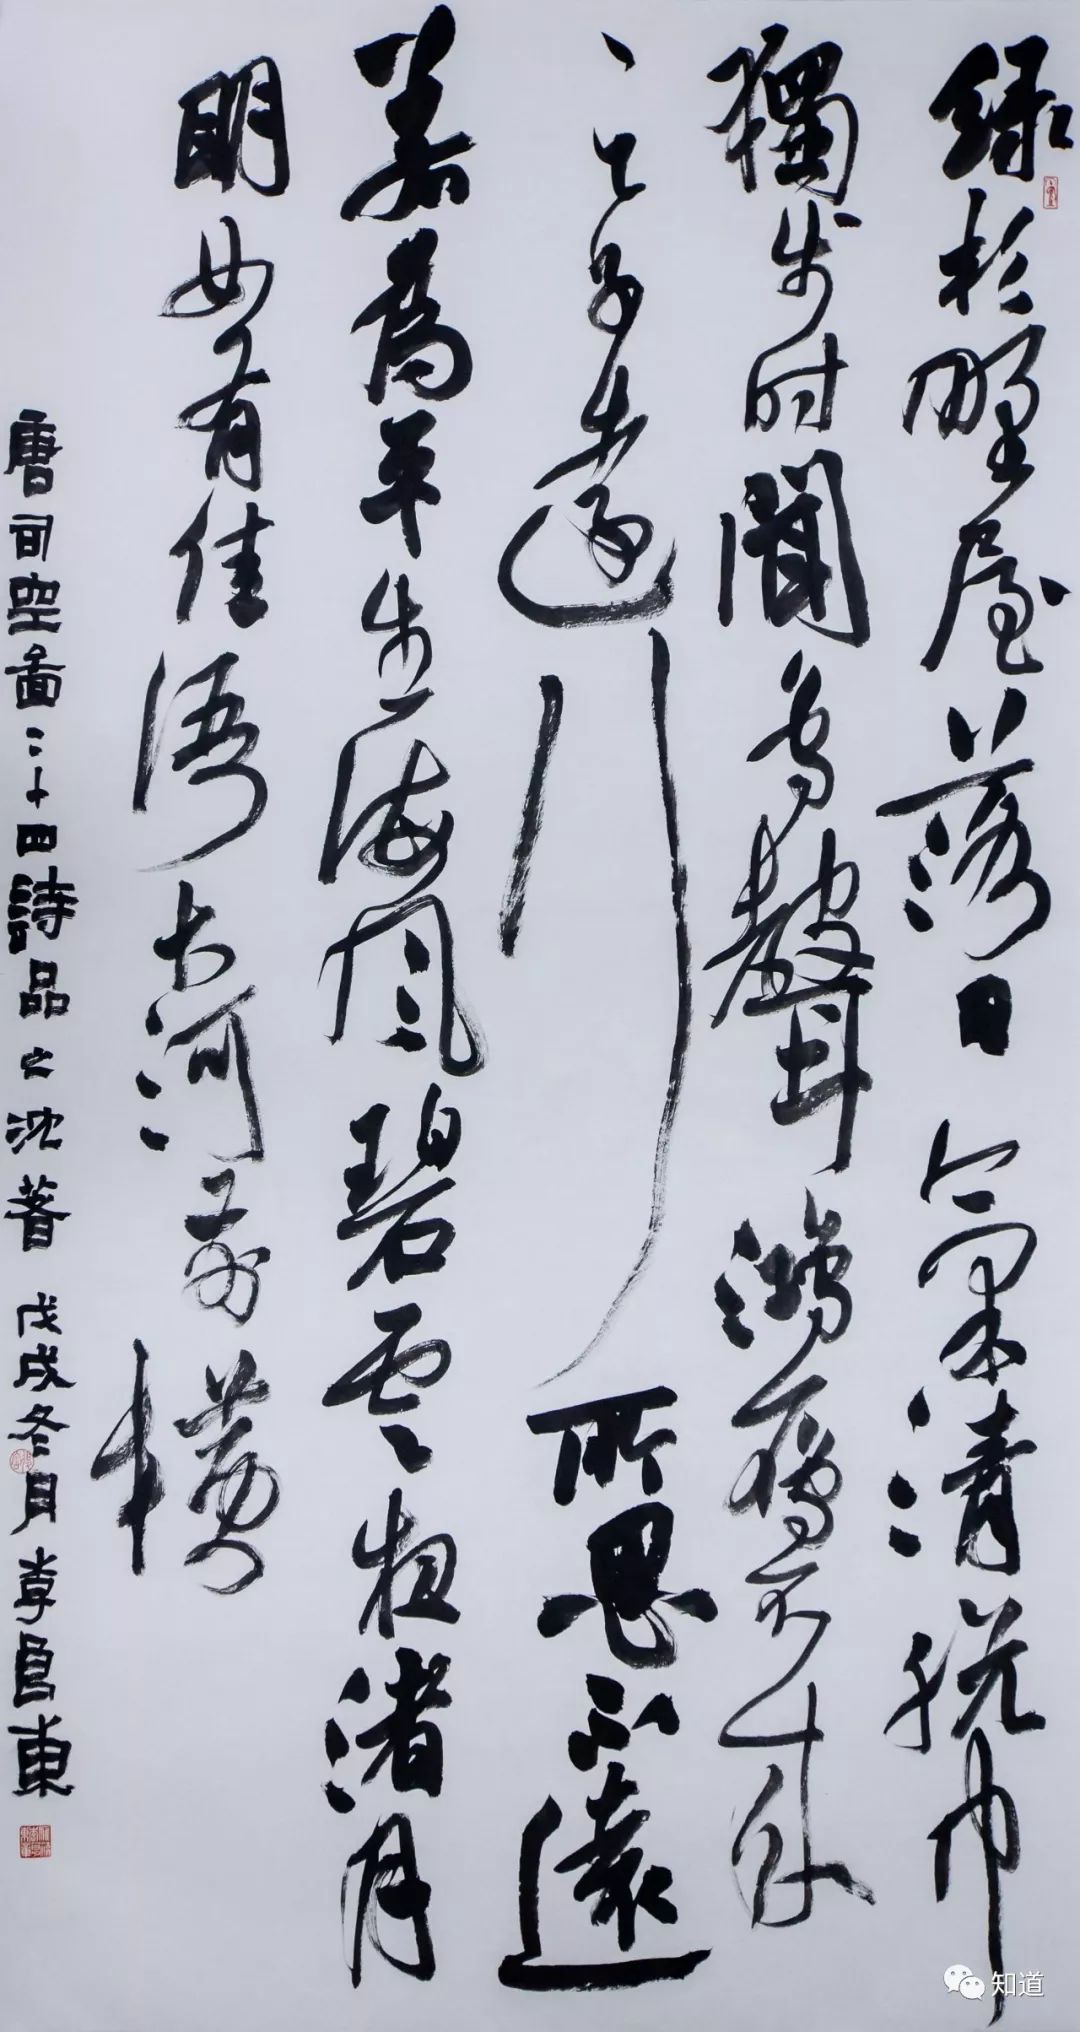 緑杉野屋落日氣清脱巾
獨步时聞鸟聲鴻鴈不来
之子遠行所思不遠
若為平生海風碧雲夜渚月
明如有佳语大河前横
唐司空圖二十四詩品之沈著 戊戌冬月李東
知道